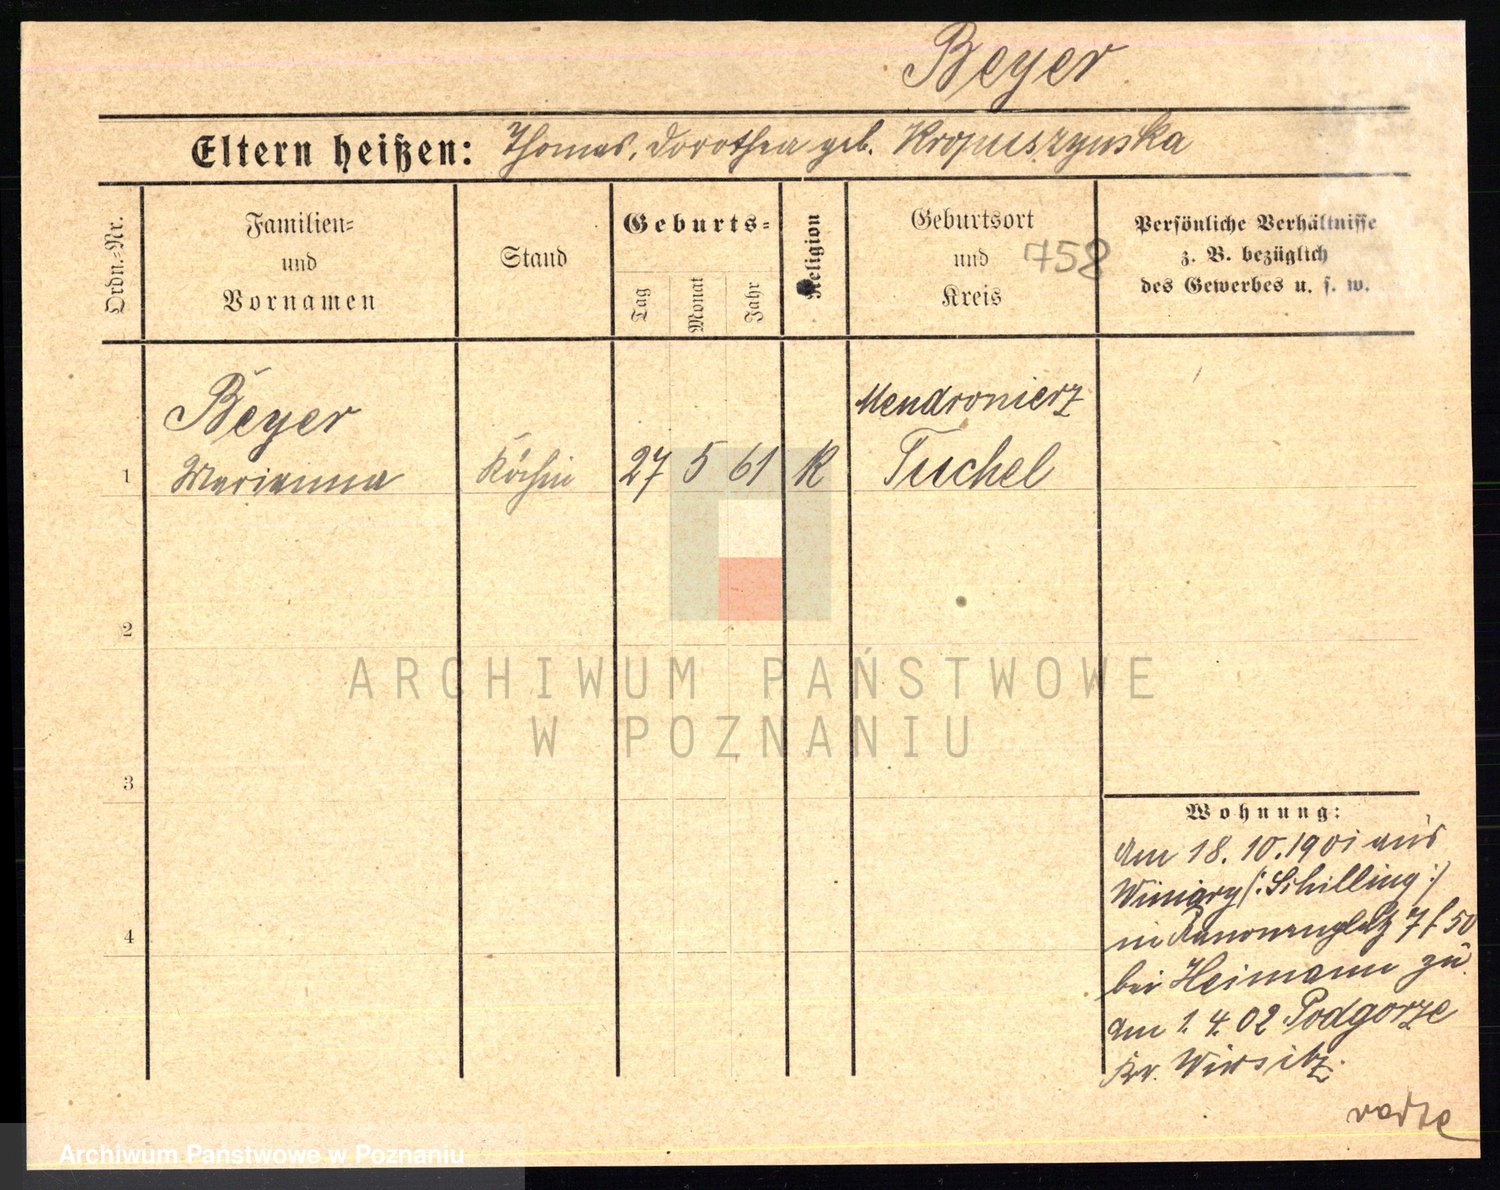 Beyer
Eltern heißen: Thomas, Dorothea geb. Kropuszynska
Ordn.-Nr.
Familien-
und
Vornamen
Stand
Geburts-
Tag
Monat
Jahr
Religion
Geburtsort
und
Kreis
758
Persönliche Verhältnisse
z. B. bezüglich
des Gewerbes u. s. w.
Beyer
Mendronierz
1 Marianna Köchin 27 5 61 K Tuchel
2
ARCHIWUM PAŃSTWOWE
W POZNANIU
3
Wohnung:
Am 18. 10. 1901 aus
Winiary (: Schilling :)
in Kanonenplatz 7 f 50
4
bei Heimann zu.
Am 1. 4. 02 Podgorze
Kr. Wirsitz.
Archiwum Państwowe w Poznaniu